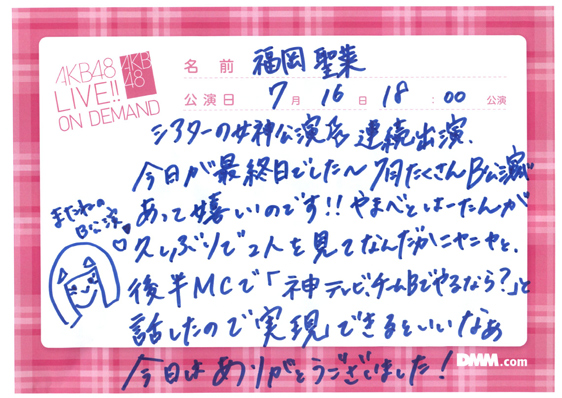 AKB48
LIVE!!
ON DEMAND
AKB
48
名前 福岡 聖菜
公演日 7月16日18:00公演
シアターの女神公演 連続出演、
今日が最終日でした〜 7月たくさんB公演が
あって嬉しいのです!! やまべとはーたんが
久しぶりで2人を見てなんだかニヤニヤと、
後半MCで「神テレビ、チームBでやるなら?」と
話したので実現できるといいなぁ
今日はありがとうございました!
またねの
B公演
DMM.com